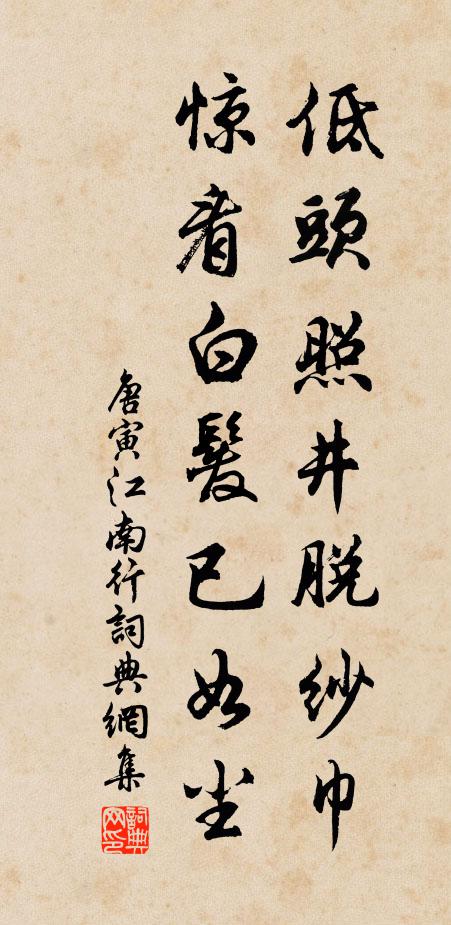 低頭照井脱紗巾
惊看白髮已如尘
唐寅江南行詞典網集
詞典网印